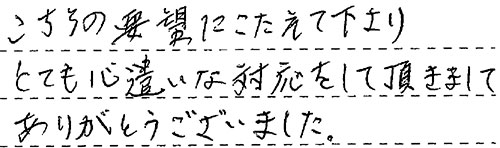 こちらの要望にこたえて下さり
とても心遣いな対応をして頂きまして
ありがとうございました。